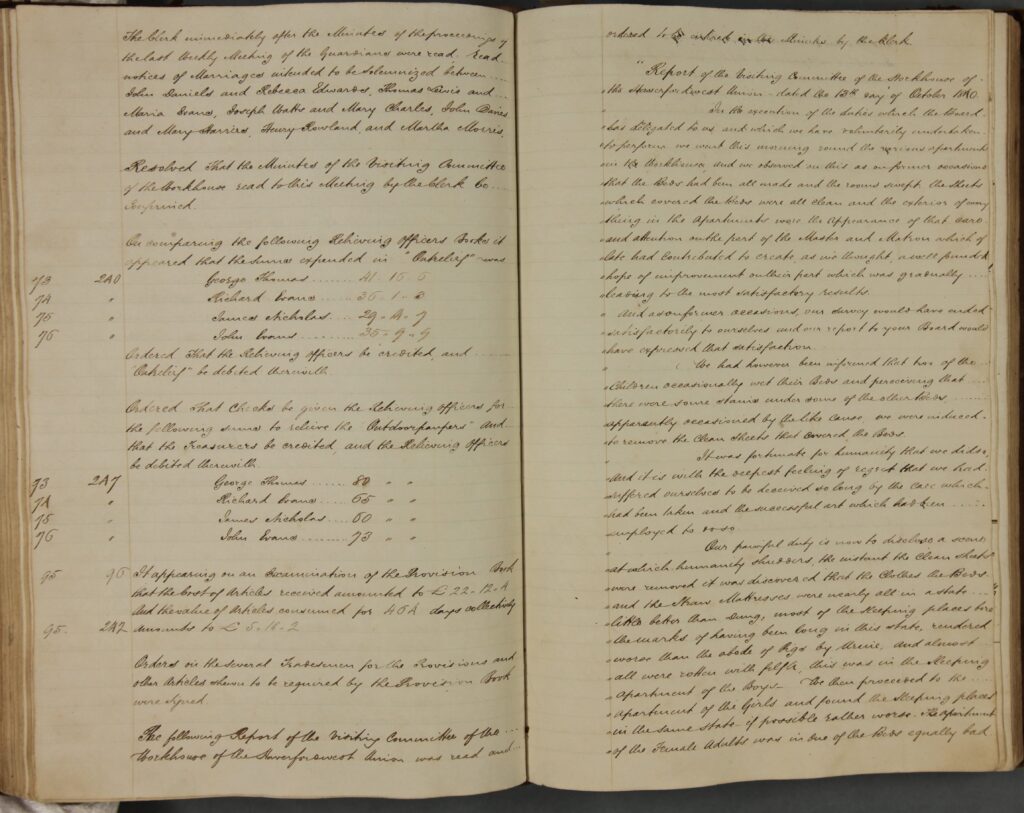 The Clerk immediately after the Minutes of the proceedings of
the last Weekly Meeting of the Guardians were read Read
notices of Marriages intended to be solemnized between
John Daniels and Rebecca Edwardes, Thomas Lewis and
Maria Evans, Joseph Watts and Mary Charles, John Davies
and Mary Harries, Henry Rowland and Martha Morris
Resolved That the Minutes of the Visiting Committee
of the Workhouse read to this Meeting by the Clerk be
Confirmed
On comparing the following Relieving Officers Books it
appeared that the sums expended in "Outrelief" was
73 240 George Thomas 41-15-5
74 " Richard Evans 36-1-3
75 " James Nicholas 29-4-7
76 " John Evans 35-9-9
Ordered That the Relieving Officers be credited, and
"Outrelief" be debited therewith
Ordered That Checks be given the Relieving Officers for
the following sums to relieve the "Outdoorpaupers" And
that the Treasurers be credited, and the Relieving Officers
be debited therewith
73 247 George Thomas 80 " "
74 " Richard Evans 65 " "
75 " James Nicholas 60 " "
76 " John Evans 73 " "
95 96 It appearing on an Examination of the Provision Book
that the Cost of Articles received amounted to £22-12-4
And the value of Articles consumed for 464 days collectively
95 242 amounts to £5-18-2
Orders on the several Tradesmen for the Provisions and
other Articles shewn to be required by the Provision Book
were signed
The following Report of the Visiting Committee of the
Workhouse of the Haverfordwest Union was read and
ordered to be entered in the Minutes by the Clerk
"Report of the Visiting Committee of the Workhouse of
"the Haverfordwest Union - dated the 13th day of October 1840
" In the execution of the duties which the Board
"has delegated to us, and which we have voluntarily undertaken
"to perform we went this morning round the various apartments
"in the Workhouse, and we observed on this as on former occasions
"that the Beds had been all made and the rooms swept the Sheets
"which covered the Beds were all clean and the exterior of every
"thing in the Apartments wore the Appearance of that care
"and attention on the part of the Master and Matron which of
"late had contributed to create, as we thought, a well founded
"hope of improvement on their part which was gradually
"leading to the most satisfactory results.
" And as on former occasions, our survey would have ended
"satisfactorily to ourselves and our report to your Board would
"have expressed that satisfaction
" We had however been informed that two of the
"Children occasionally wet their Beds and perceiving that
"there were some stains under some of the other Beds
"apparently occasioned by the like cause we were induced
"to remove the Clean Sheets that covered the Beds.
" It was fortunate for humanity that we did so,
"And it is with the deepest feeling of regret that we had
"suffered ourselves to be deceived so long by the care which
"had been taken and the successful art which had been
"employed to do so
" Our painful duty is now to disclose a scene
"at which humanity shudders, the instant the Clean Sheets
"were removed it was discovered that the Clothes the Beds
"and the Straw Mattresses were nearly all in a state
"little better than Dung, most of the sleeping places bore
"the marks of having been long in this state, rendered
"worse than the abode of Pigs by Urine, and almost
"all were rotten with filth, this was in the sleeping
"apartment of the Boys - We then proceeded to the
"apartment of the Girls and found the sleeping places
"in the same state if possible rather worse. The apartment
"of the Female Adults was in one of the Beds equally bad